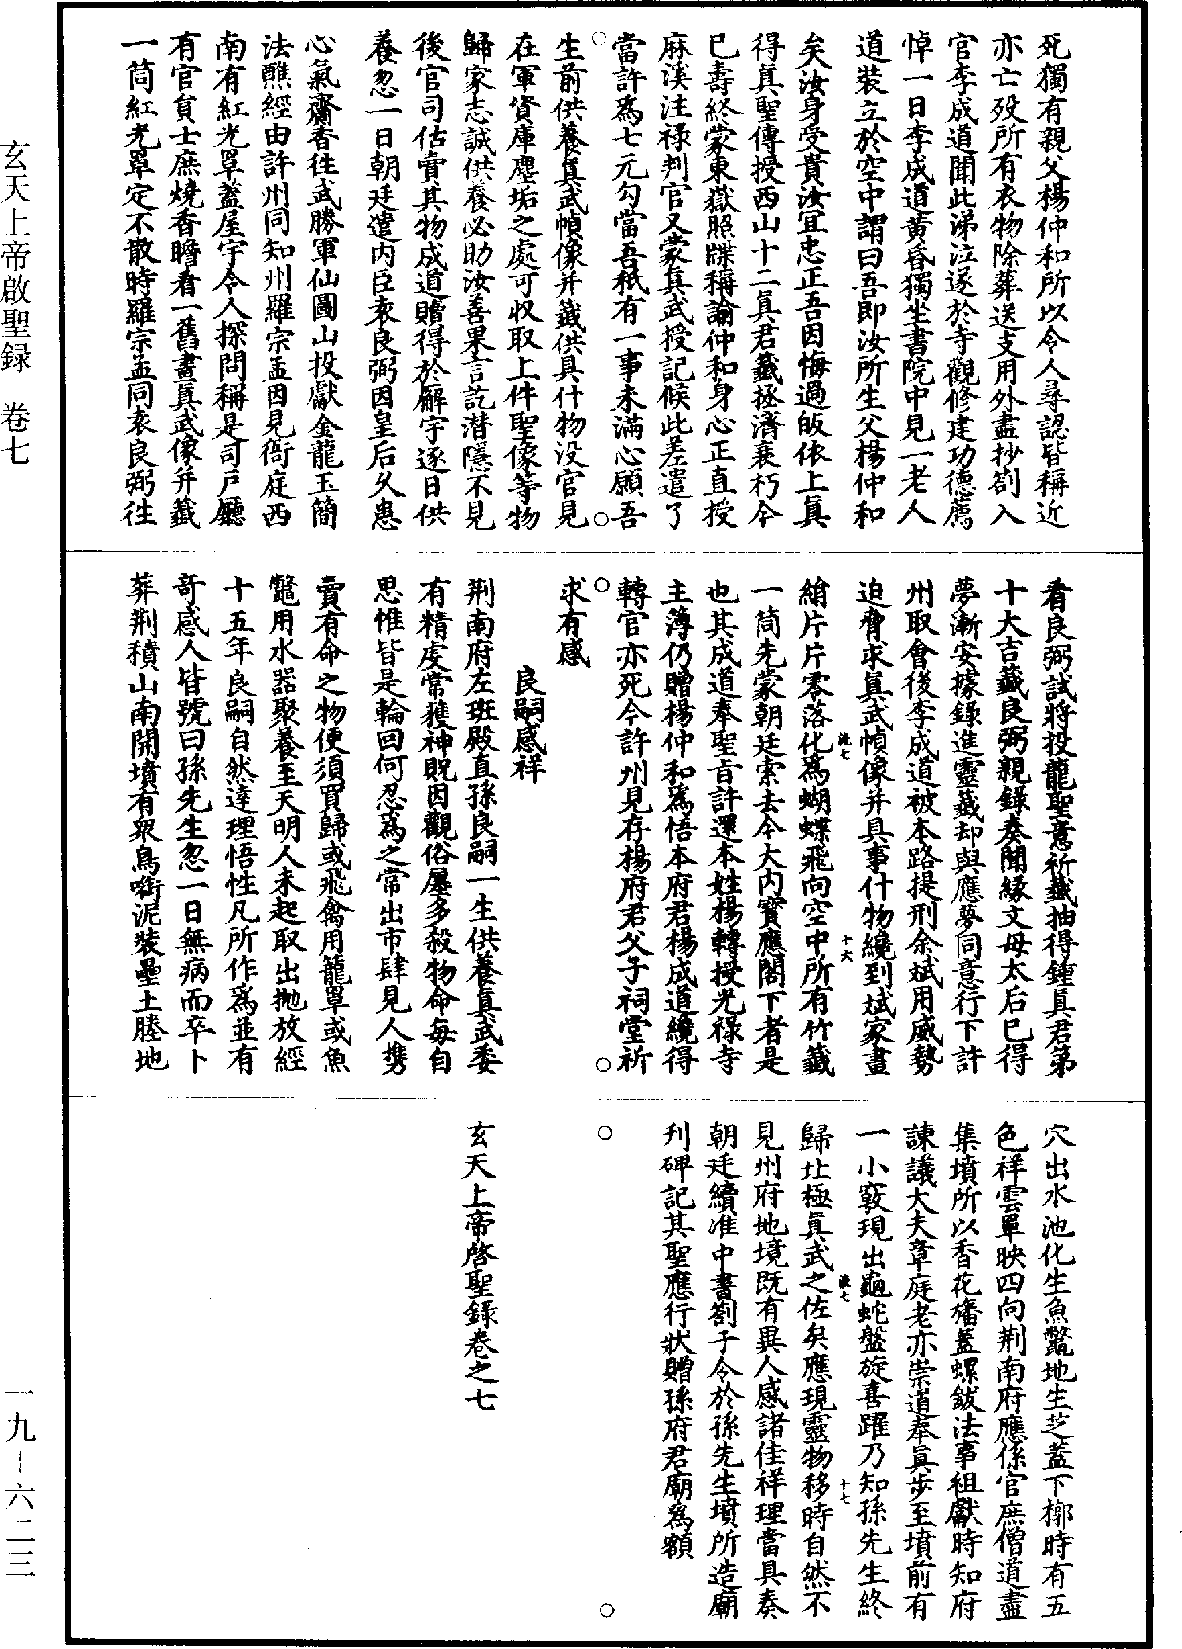 玄天上帝啟聖録　卷七
死獨有親父楊仲和所以令人尋認皆稱近
亦亡歿所有衣物除葬送支用外盡抄劄入
官李成道聞此涕泣遂於寺觀修建功德薦
悼一日李成道黃昏獨坐書院中見一老人
道裝立於空中謂曰吾即汝所生父楊仲和
矣汝身受貴汝宜忠正吾因悔過皈依上真
得真聖傳授西山十二真君籤拯濟衰朽今
已壽終蒙東嶽照牒稱諭仲和身心正直授
麻溪注祿判官又蒙真武授記候此差遣了
當許爲七元勾當吾秖有一事未滿心願吾
生前供養真武幀像并籤供具什物沒官見
在軍資庫塵垢之處可收取上件聖像等物
歸家志誠供養必助汝善果言訖潛隱不見
後官司估賣其物成道贖得於廨宇逐日供
養忽一日朝廷遣内臣袁良弼因皇后久患
心氣齋香徃武勝軍仙圖山投獻金龍玉簡
法醮經由許州同知州羅宗孟因見衙庭西
南有紅光罩蓋屋宇令人探問稱是司戶廳
有官負士庶燒香瞻看一舊畫真武像并籤
一筒紅光罩定不散時羅宗孟同袁良弼徃
看良弼試將投龍聖意祈籤抽得鍾真君第
十大吉籤良弼親錄奏聞緣文母太后已得
夢漸安據錄進靈籤却與應夢同意行下許
州取會後李成道被本路提刑余斌用威勢
迫脅求真武幀像并具事什物纔到斌家畫
綃片片零落化爲蝴蝶飛向空中所有竹籤
一筒先蒙朝廷索去今大内寶應閣下者是
也其成道奉聖旨許還本姓楊轉授光祿寺
主薄仍贈楊仲和爲悟本府君楊成道纔得
轉官亦死今許州見存楊府君父子祠堂祈
求有感
良嗣感祥
荆南府左班殿直孫良嗣一生供養真武委
有精虔常獲神貺因觀俗屢多殺物命每自
思惟皆是輪回何忍爲之常出市肆見人携
賣有命之物便須買歸或飛禽用籠罩或魚
鼈用水器聚養至天明人未起取出抛放經
十五年良嗣自然達理悟性凡所作爲並有
奇感人皆號曰孫先生忽一日無病而卒卜
葬荆積山南開墳有衆鳥啣泥裝壘土塍地
穴出水池化生魚鼈地生芝蓋下槨時有五
色祥雲罩映四向荆南府應係官庶僧道盡
集墳所以香花旛蓋螺鈸法事組獻時知府
諫議大夫章庭老亦崇道奉真步至墳前有
一小竅現出龜蛇盤旋喜躍乃知孫先生終
歸北極真武之佐矣應現靈物移時自然不
見州府地境既有異人感諸佳祥理當具奏
朝廷續准中書劄子令於孫先生墳所造廟
刋碑記其聖應行狀贈孫府君廟爲額
玄天上帝啓聖錄卷之七
十六
十七
一九－六二三